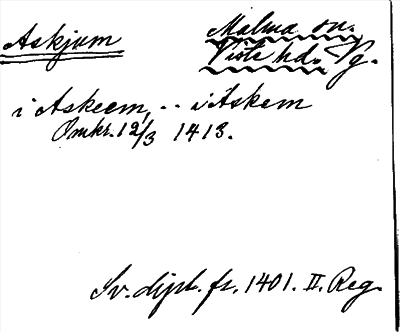 Askjum
Malma sn.
Viste hd. Vg.
i Askeem, -- i Askem
Omkr. 12/3 1413.
Sv. dipl. fr. 1401. II. Reg.